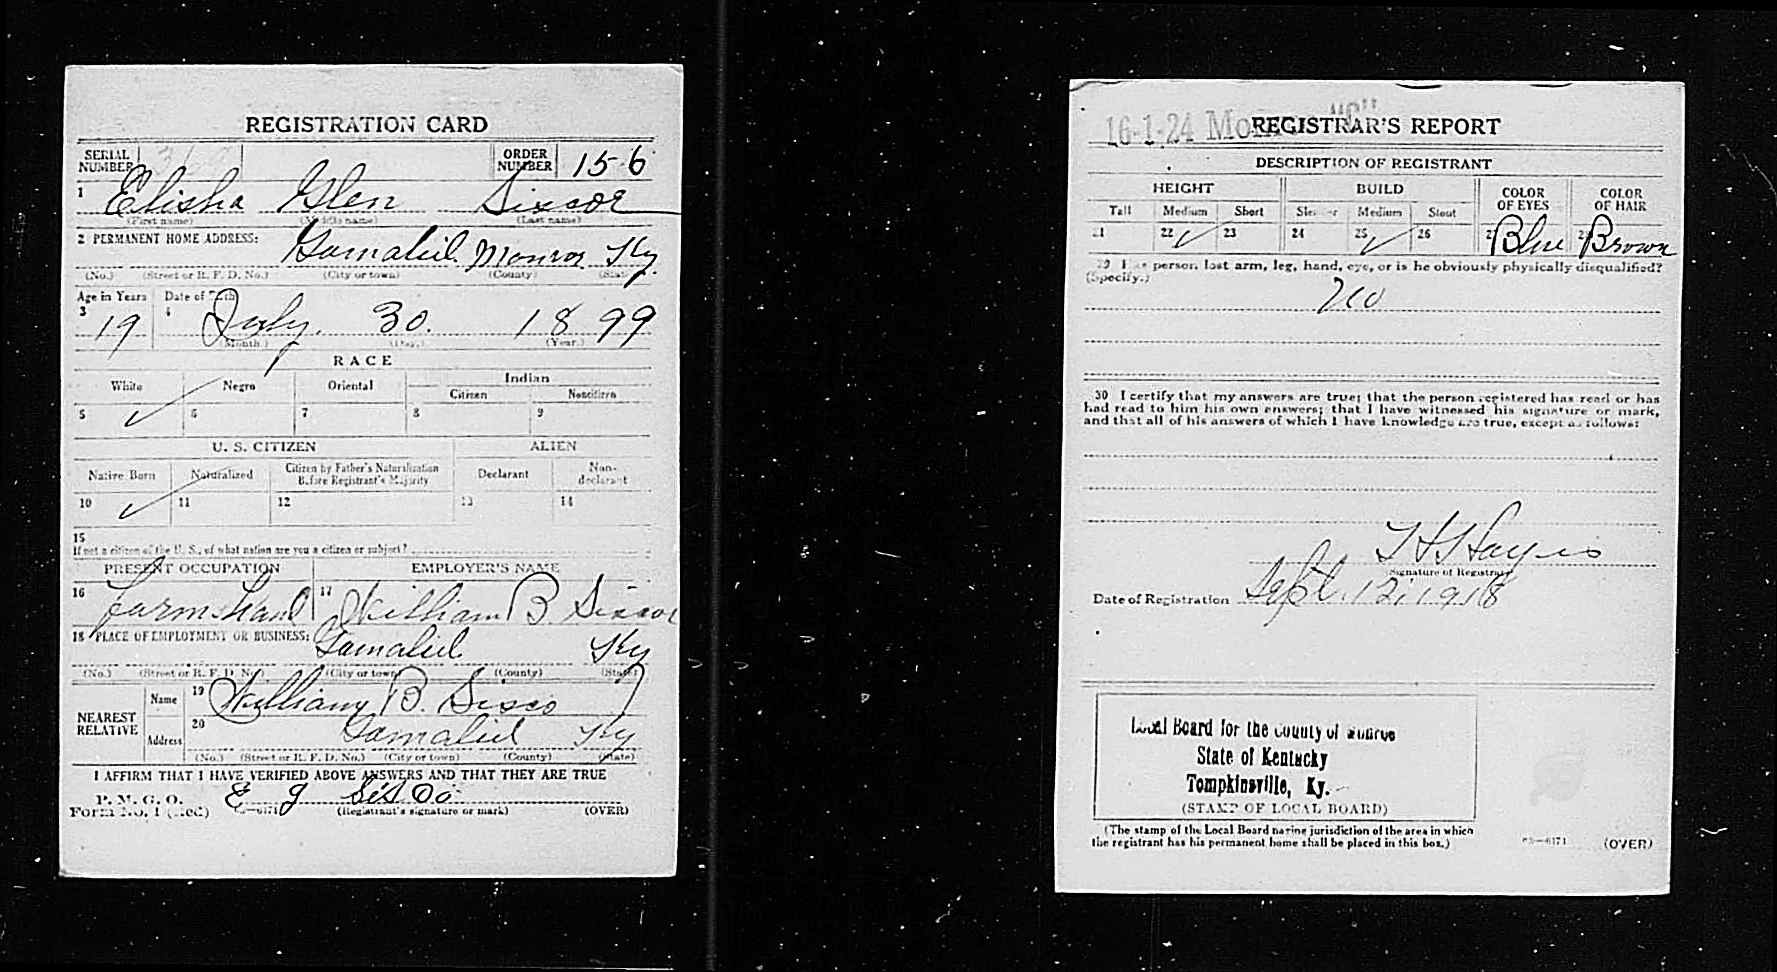 REGISTRATION CARD
SERIAL NUMBER
ORDER NUMBER 156
1 Elisha Glen Siscoe
(First name) (Middle name) (Last name)
2 PERMANENT HOME ADDRESS: Gamaliel Monroe Ky.
(No.) (Street or R. F. D. No.) (City or town) (County) (State)
Age in Years Date of Birth
3 19 4 July. 30. 1899
(Month.) (Day.) (Year.)
RACE
White Negro Oriental Indian
Citizen Noncitizen
5 ✓ 6 7 8 9
U. S. CITIZEN ALIEN
Native Born Naturalized Citizen by Father's Naturalization Before Registrant's Majority Declarant Non-declarant
10 ✓ 11 12 13 14
15
If not a citizen of the U. S., of what nation are you a citizen or subject?
PRESENT OCCUPATION EMPLOYER'S NAME
16 Farm hand 17 William B. Siscoe
18 PLACE OF EMPLOYMENT OR BUSINESS: Gamaliel Ky
(No.) (Street or R. F. D. No.) (City or town) (County) (State)
NEAREST RELATIVE
Name 19 William B. Sisco
Address 20 Gamaliel Ky
(No.) (Street or R. F. D. No.) (City or town) (County) (State)
I AFFIRM THAT I HAVE VERIFIED ABOVE ANSWERS AND THAT THEY ARE TRUE
P. M. G. O.
Form No. 1 (Red) E g Sisco
(Registrant's signature or mark) (OVER)
16-1-24 "C"
REGISTRAR'S REPORT
DESCRIPTION OF REGISTRANT
HEIGHT BUILD COLOR OF EYES COLOR OF HAIR
Tall Medium Short Slender Medium Stout
21 22 ✓ 23 24 25 ✓ 26 27 Blue 28 Brown
29 Has person lost arm, leg, hand, eye, or is he obviously physically disqualified?
(Specify.) No
30 I certify that my answers are true; that the person registered has read or has
had read to him his own answers; that I have witnessed his signature or mark,
and that all of his answers of which I have knowledge are true, except as follows:
T H Hayes
(Signature of Registrar)
Date of Registration Sept. 12, 1918
Local Board for the County of Monroe
State of Kentucky
Tompkinsville, Ky.
(STAMP OF LOCAL BOARD)
(The stamp of the Local Board having jurisdiction of the area in which
the registrant has his permanent home shall be placed in this box.)
03—6171 (OVER)